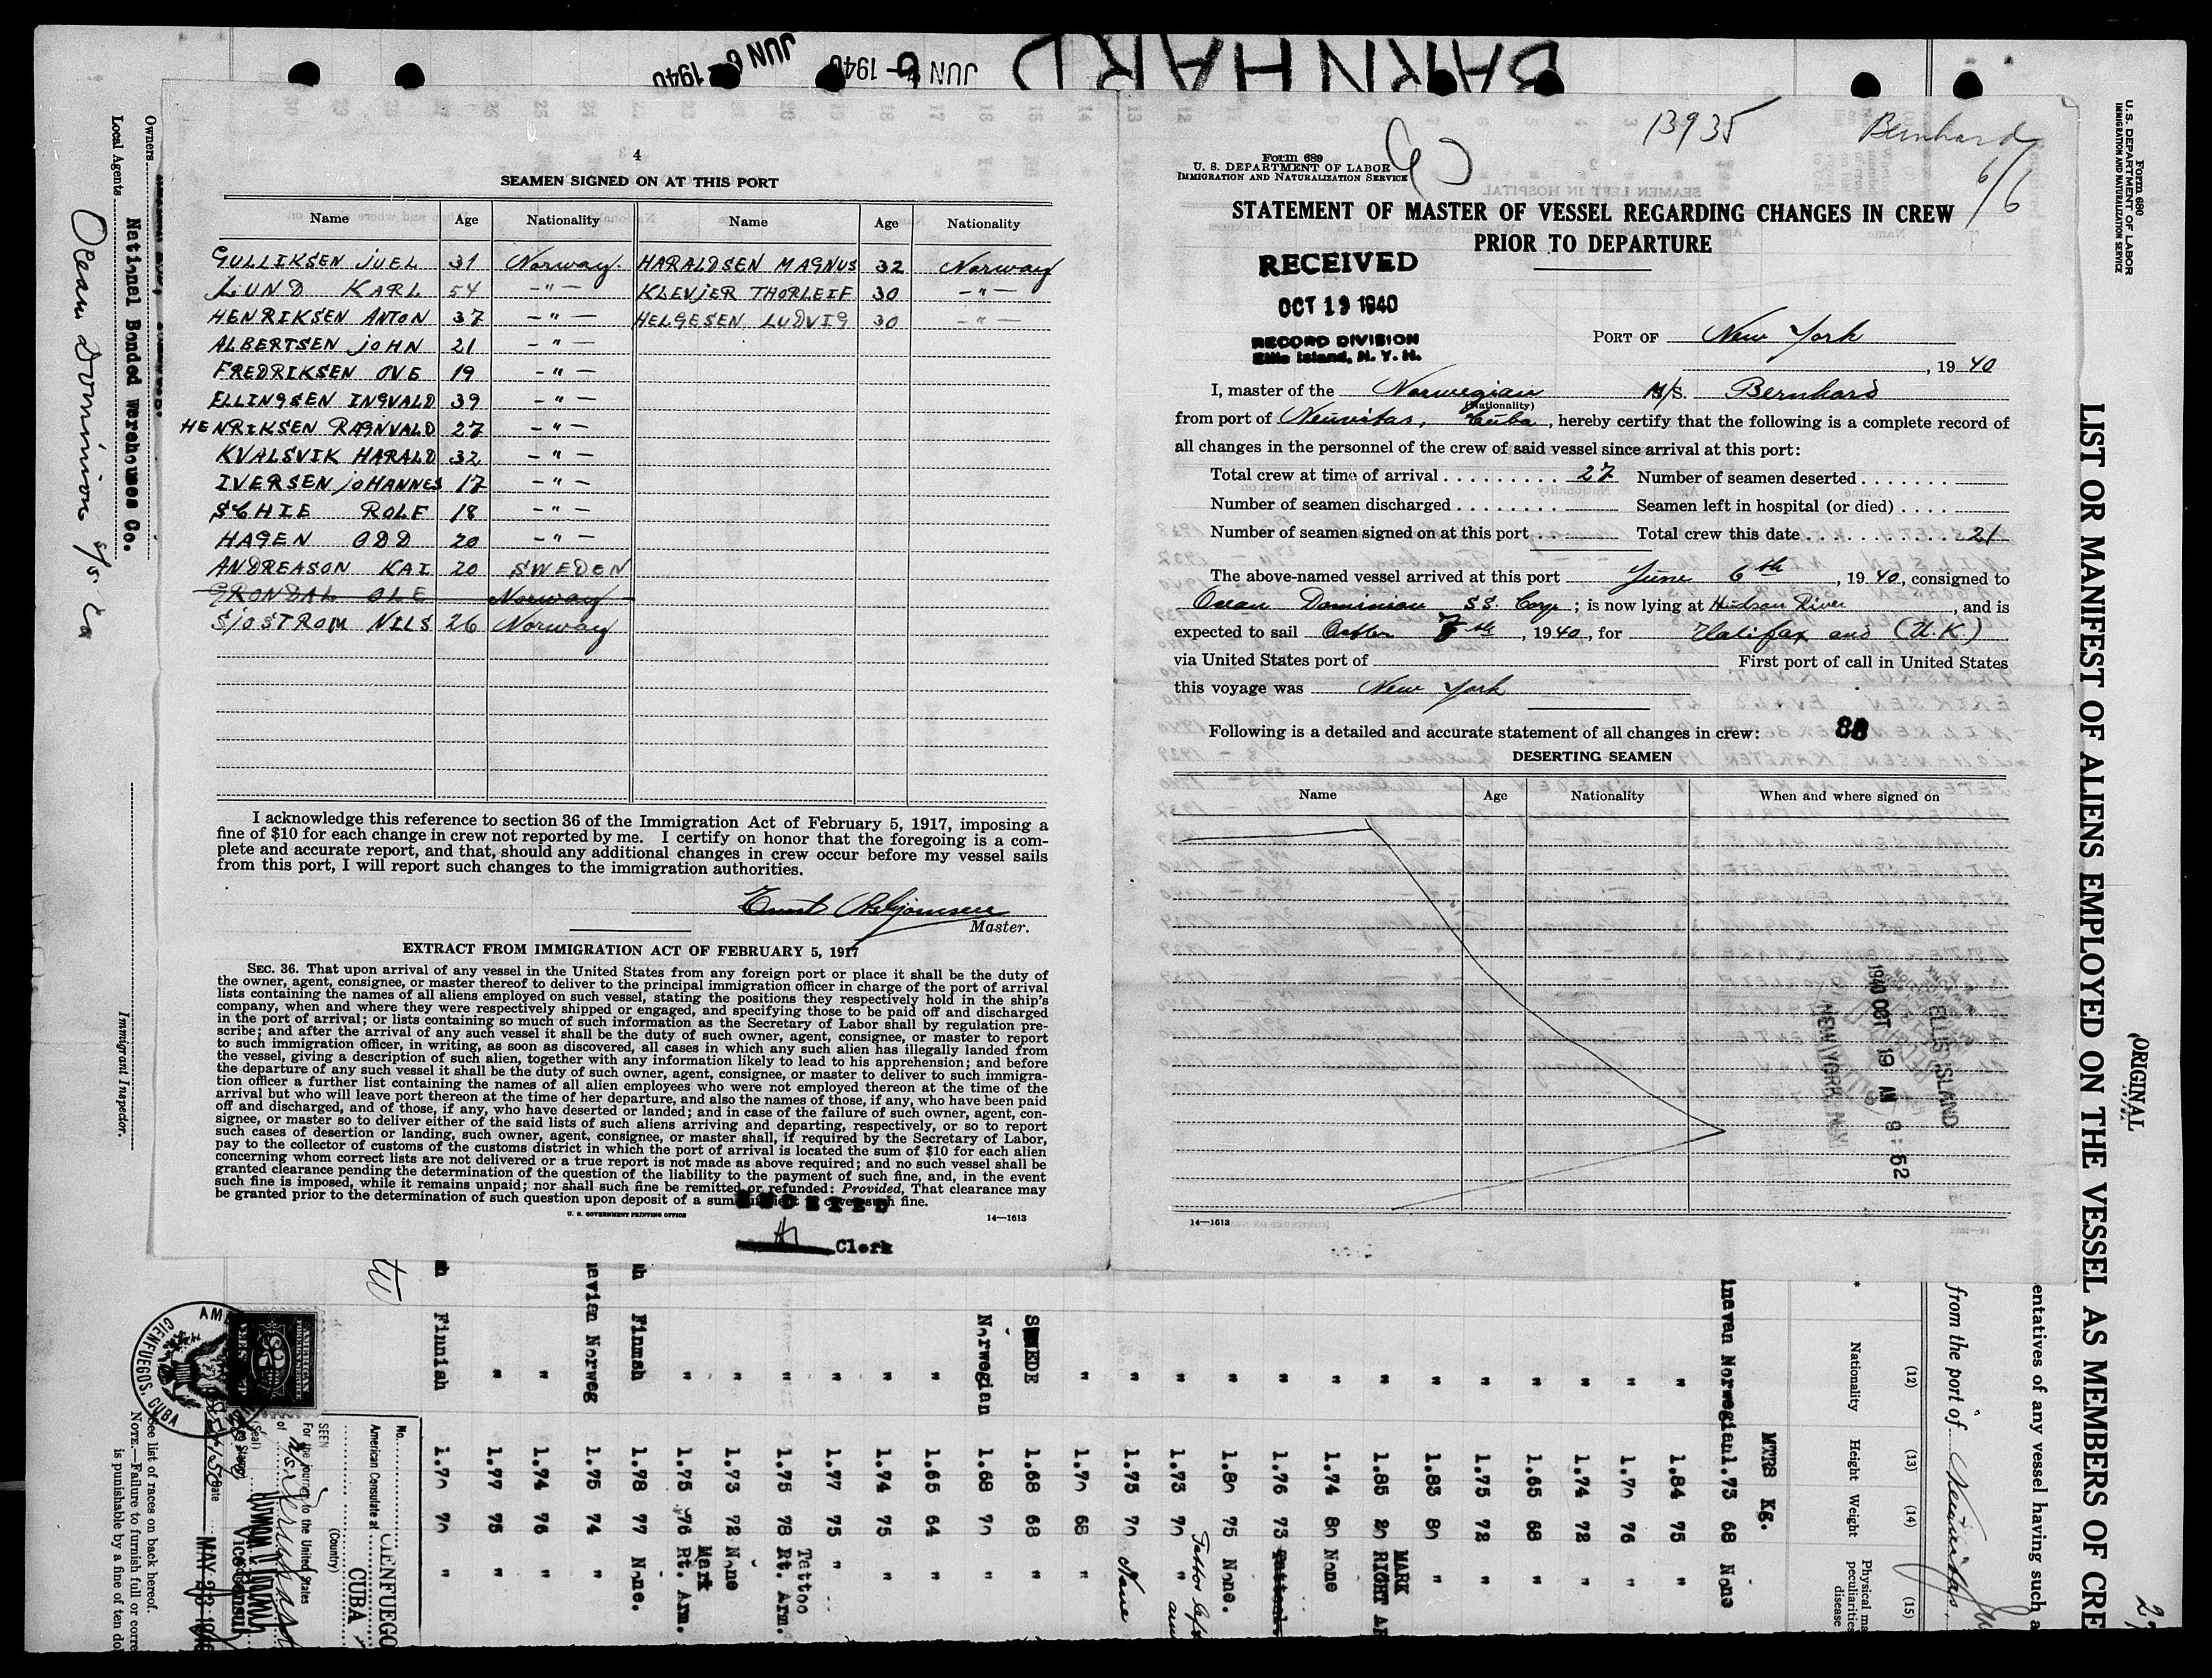 BARNHARD
JUN 6 - 1940
JUN 6 - 1940
4
SEAMEN SIGNED ON AT THIS PORT
Name Age Nationality Name Age Nationality
GULLIKSEN JUEL 31 Norway HARALDSEN MAGNUS 32 Norway
LUND KARL 54 -"- KLEVJER THORLEIF 30 -"-
HENRIKSEN ANTON 37 -"- HELGESEN LUDVIG 30 -"-
ALBERTSEN JOHN 21 -"-
FREDRIKSEN OVE 19 -"-
ELLINGSEN INGVALD 39 -"-
HENRIKSEN RAGNVALD 27 -"-
KVALSVIK HARALD 32 -"-
IVERSEN JOHANNES 17 -"-
SCHIE ROLF 18 -"-
HAGEN ODD 20 -"-
ANDREASON KAI 20 SWEDEN
GRONDAL OLE Norway
SJOSTROM NILS 26 Norway
I acknowledge this reference to section 36 of the Immigration Act of February 5, 1917, imposing a
fine of $10 for each change in crew not reported by me. I certify on honor that the foregoing is a com-
plete and accurate report, and that, should any additional changes in crew occur before my vessel sails
from this port, I will report such changes to the immigration authorities.
Master.
EXTRACT FROM IMMIGRATION ACT OF FEBRUARY 5, 1917
SEC. 36. That upon arrival of any vessel in the United States from any foreign port or place it shall be the duty of
the owner, agent, consignee, or master thereof to deliver to the principal immigration officer in charge of the port of arrival
lists containing the names of all aliens employed on such vessel, stating the positions they respectively hold in the ship's
company, when and where they were respectively shipped or engaged, and specifying those to be paid off and discharged
in the port of arrival; or lists containing so much of such information as the Secretary of Labor shall by regulation pre-
scribe; and after the arrival of any such vessel it shall be the duty of such owner, agent, consignee, or master to report
to such immigration officer, in writing, as soon as discovered, all cases in which any such alien has illegally landed from
the vessel, giving a description of such alien, together with any information likely to lead to his apprehension; and before
the departure of any such vessel it shall be the duty of such owner, agent, consignee, or master to deliver to such immigra-
tion officer a further list containing the names of all alien employees who were not employed thereon at the time of the
arrival but who will leave port thereon at the time of her departure, and also the names of those, if any, who have been paid
off and discharged, and of those, if any, who have deserted or landed; and in case of the failure of such owner, agent, con-
signee, or master so to deliver either of the said lists of such aliens arriving and departing, respectively, or so to report
such cases of desertion or landing, such owner, agent, consignee, or master shall, if required by the Secretary of Labor,
pay to the collector of customs of the customs district in which the port of arrival is located the sum of $10 for each alien
concerning whom correct lists are not delivered or a true report is not made as above required; and no such vessel shall be
granted clearance pending the determination of the question of the liability to the payment of such fine, and, in the event
such fine is imposed, while it remains unpaid; nor shall such fine be remitted or refunded: Provided, That clearance may
be granted prior to the determination of such question upon deposit of a sum sufficient to cover such fine.
U. S. GOVERNMENT PRINTING OFFICE 14—1613
Clerk
13935 Bernhard
6/6
Form 689
U. S. DEPARTMENT OF LABOR
IMMIGRATION AND NATURALIZATION SERVICE
STATEMENT OF MASTER OF VESSEL REGARDING CHANGES IN CREW
PRIOR TO DEPARTURE
RECEIVED
OCT 19 1940
RECORD DIVISION
Ellis Island, N. Y. H.
PORT OF New York
, 19 40
I, master of the Norwegian M/S. Bernhard
(Nationality)
from port of Neuvitas, Cuba, hereby certify that the following is a complete record of
all changes in the personnel of the crew of said vessel since arrival at this port:
Total crew at time of arrival 27 Number of seamen deserted
Number of seamen discharged Seamen left in hospital (or died)
Number of seamen signed on at this port Total crew this date 21
The above-named vessel arrived at this port June 6th, 1940, consigned to
Ocean Dominion SS. Corp; is now lying at Hudson River, and is
expected to sail 7th, 1940, for Halifax and (U.K)
via United States port of First port of call in United States
this voyage was New York
Following is a detailed and accurate statement of all changes in crew: 88
DESERTING SEAMEN
Name Age Nationality When and where signed on
1940 OCT 19 AM 8:52
ELLIS ISLAND
NEW YORK, N.Y.
14—1613
Owners
Local Agents National Bonded Warehouses Co.
Ocean Dominion S/S. Co
Immigrant Inspector.
Form 680
U. S. DEPARTMENT OF LABOR
IMMIGRATION AND NATURALIZATION SERVICE
LIST OR MANIFEST OF ALIENS EMPLOYED ON THE VESSEL AS MEMBERS OF CRE
ORIGINAL
entatives of any vessel having such a
from the port of
(12) (13) (14) (15)
Nationality Height Weight Physical ma
peculiarities
disease
MTRS Kg.
inavan Norwegian 1.73 68 None
" 1.84 75 "
" 1.70 76 "
" 1.74 72 "
" 1.65 68 "
" 1.75 72 "
" 1.83 80 "
MARK
" 1.85 80 RIGHT AR
" 1.74 80 None
" 1.76 73
" 1.80 75 None.
" 1.73 70 "
" 1.75 70 None
" 1.70 68 "
SWEDE 1.68 68 "
Norwegian 1.68 70 "
" 1.65 64 "
" 1.74 75 "
" 1.77 75 "
Tattoo
" 1.75 78 Rt. Arm.
" 1.73 72 None
Mark
" 1.75 76 Rt. Arm.
h Finnish 1.78 77 None.
avian Norweg 1.75 74 "
" 1.74 76 "
" 1.77 75 "
sh Finnish 1.70 70 "
No.
American Consulate at CIENFUEGO
CUBA
(Country)
SEEN
For the journey to the United States
of
(Seal)
Vice Consul
Date MAY 23 19
AMERICAN FOREIGN SERVICE FEE $2
CIENFUEGOS, CUBA
See list of races on back hereof.
NOTE.—Failure to furnish full or corre
is punishable by a fine of ten dol